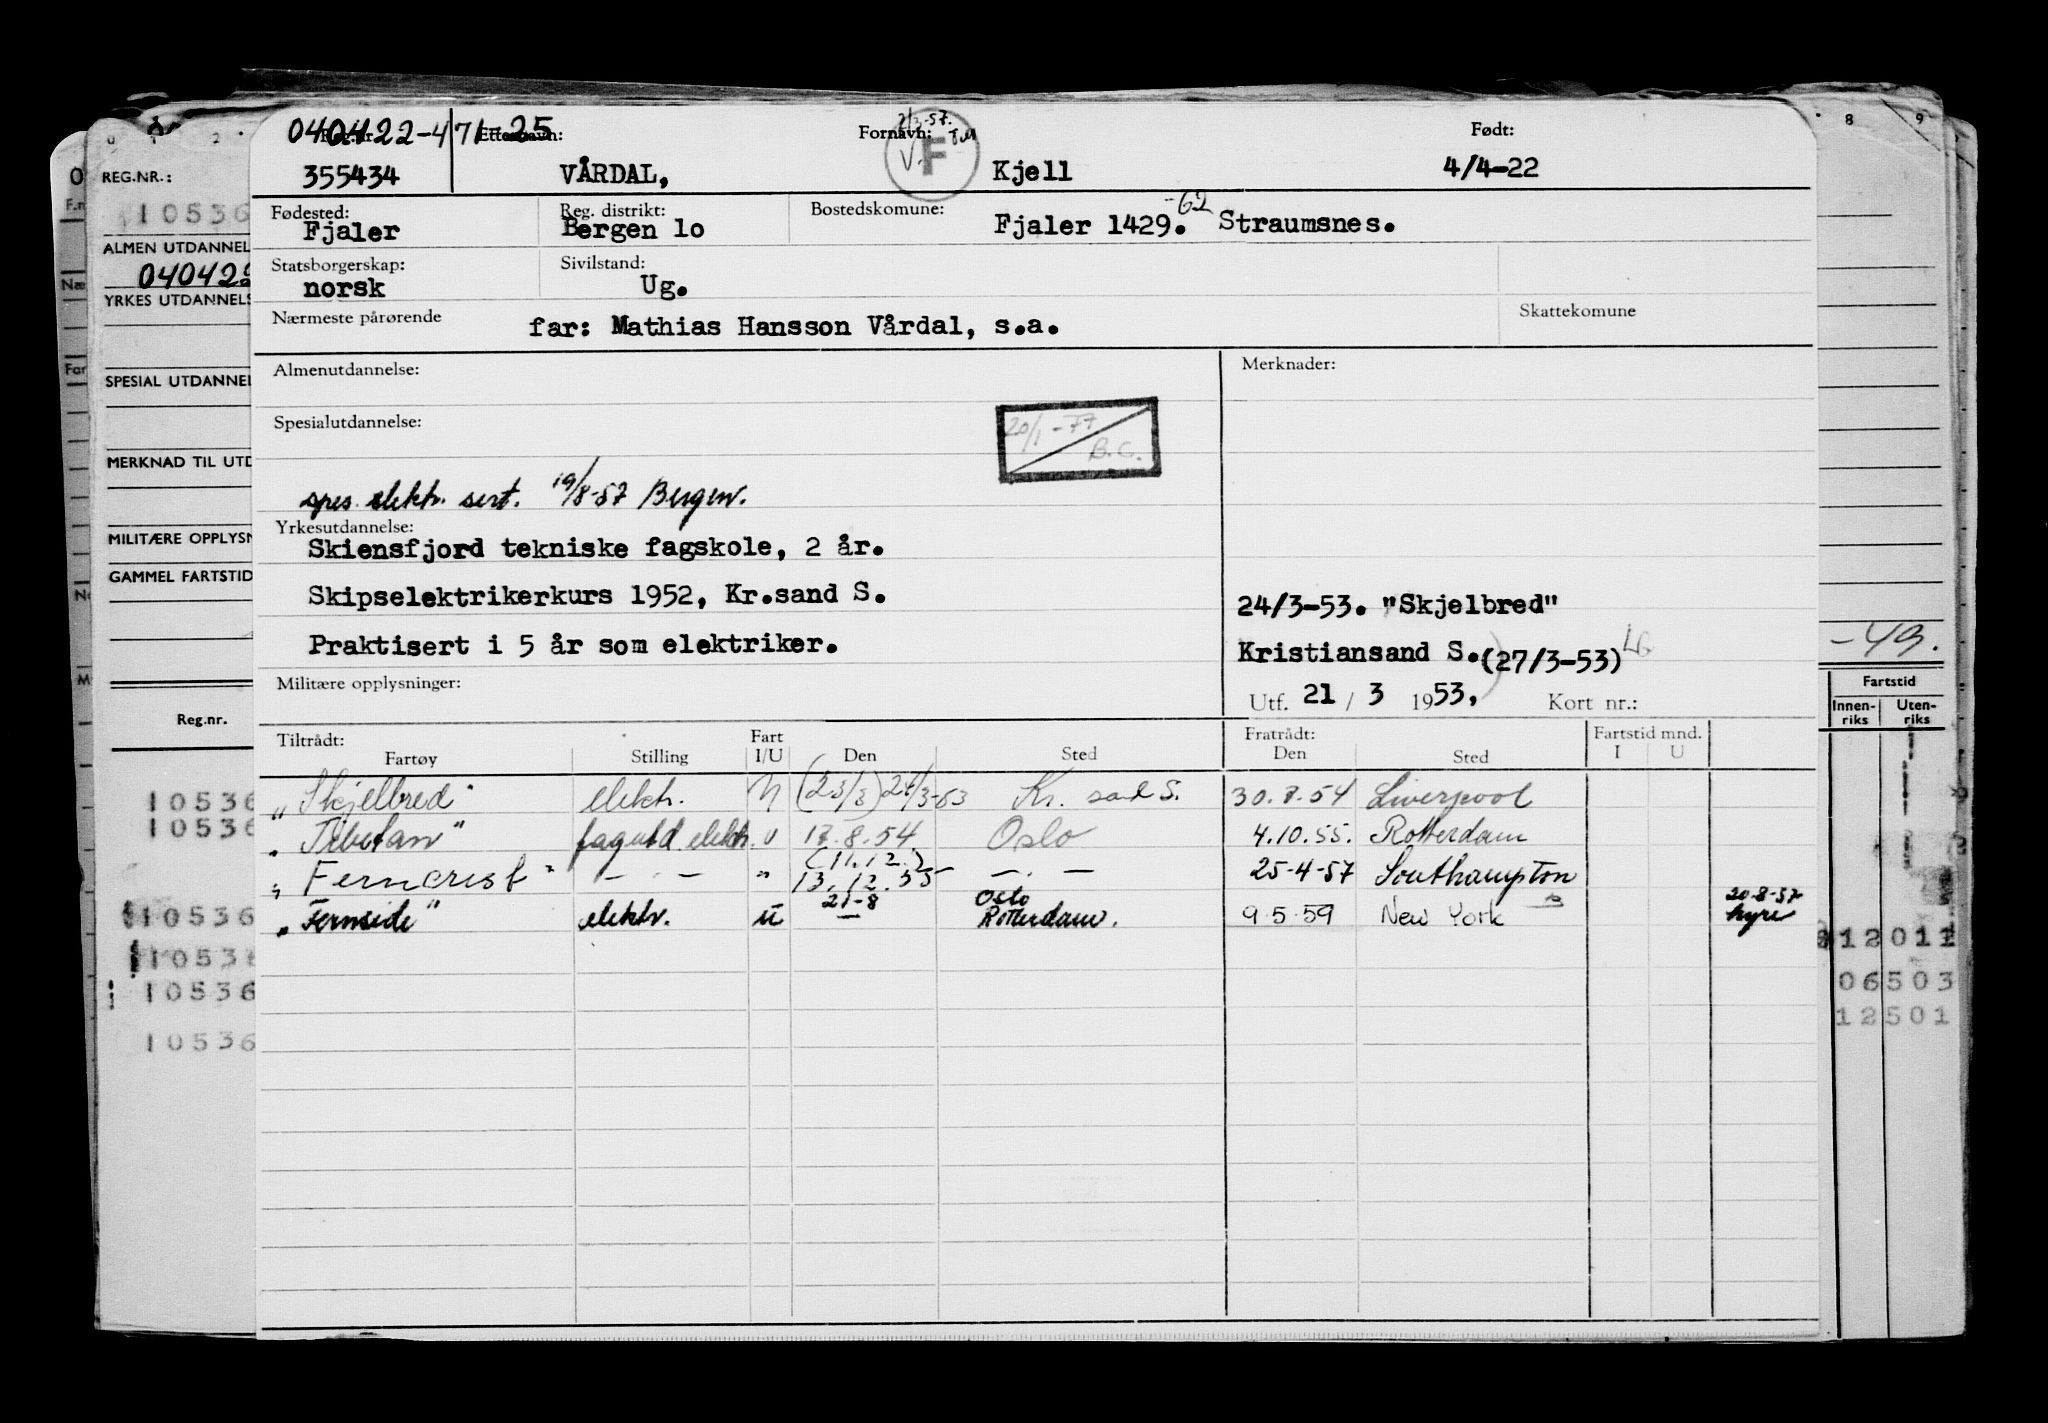 040422-47125
2/3-57.
Reg.nr. Etternavn: Fornavn: Født:
355434 VÅRDAL, V. F Kjell 4/4-22
Fødested: Reg. distrikt: Bostedskomune:
Fjaler Bergen lo Fjaler 1429. -62 Straumsnes.
Statsborgerskap: Sivilstand:
norsk Ug.
Nærmeste pårørende far: Mathias Hansson Vårdal, s.a. Skattekomune
Almenutdannelse: Merknader:
Spesialutdannelse: 20/1-77 B.C.
spes. elektr. sert. 19/8-57 Bergen.
Yrkesutdannelse:
Skiensfjord tekniske fagskole, 2 år.
Skipselektrikerkurs 1952, Kr.sand S. 24/3-53. "Skjelbred"
Praktisert i 5 år som elektriker. Kristiansand S.(27/3-53)
Militære opplysninger: Utf. 21 / 3 1953, Kort nr.:
Tiltrådt: Fart Fratrådt: Fartstid mnd.
Fartøy Stilling I/U Den Sted Den Sted I U
"Skjelbred" elektr. U (23/3) 24/3-53 Kr. sand S. 30.7.54 Liverpool
"Tibetan" fagutd elektr. U 17.8.54 Oslo 4.10.55. Rotterdam
"Ferncrest" — . — " (11.12.) 13.12.55 — . — 25-4-57 Southampton
"Fernside" elektr. U 21-8 — Oslo Rotterdam. 9.5.59 New York 20-8-57 hyre
REG.NR.:
10536
ALMEN UTDANNEL
040422
YRKES UTDANNELS
SPESIAL UTDANNEL
MERKNAD TIL UTD
MILITÆRE OPPLYSN
GAMMEL FARTSTID
Reg.nr.
10536
10536
10536
10536
10536
10536
8 9
-49.
Fartstid
Innen-riks Uten-riks
12011
06503
12501